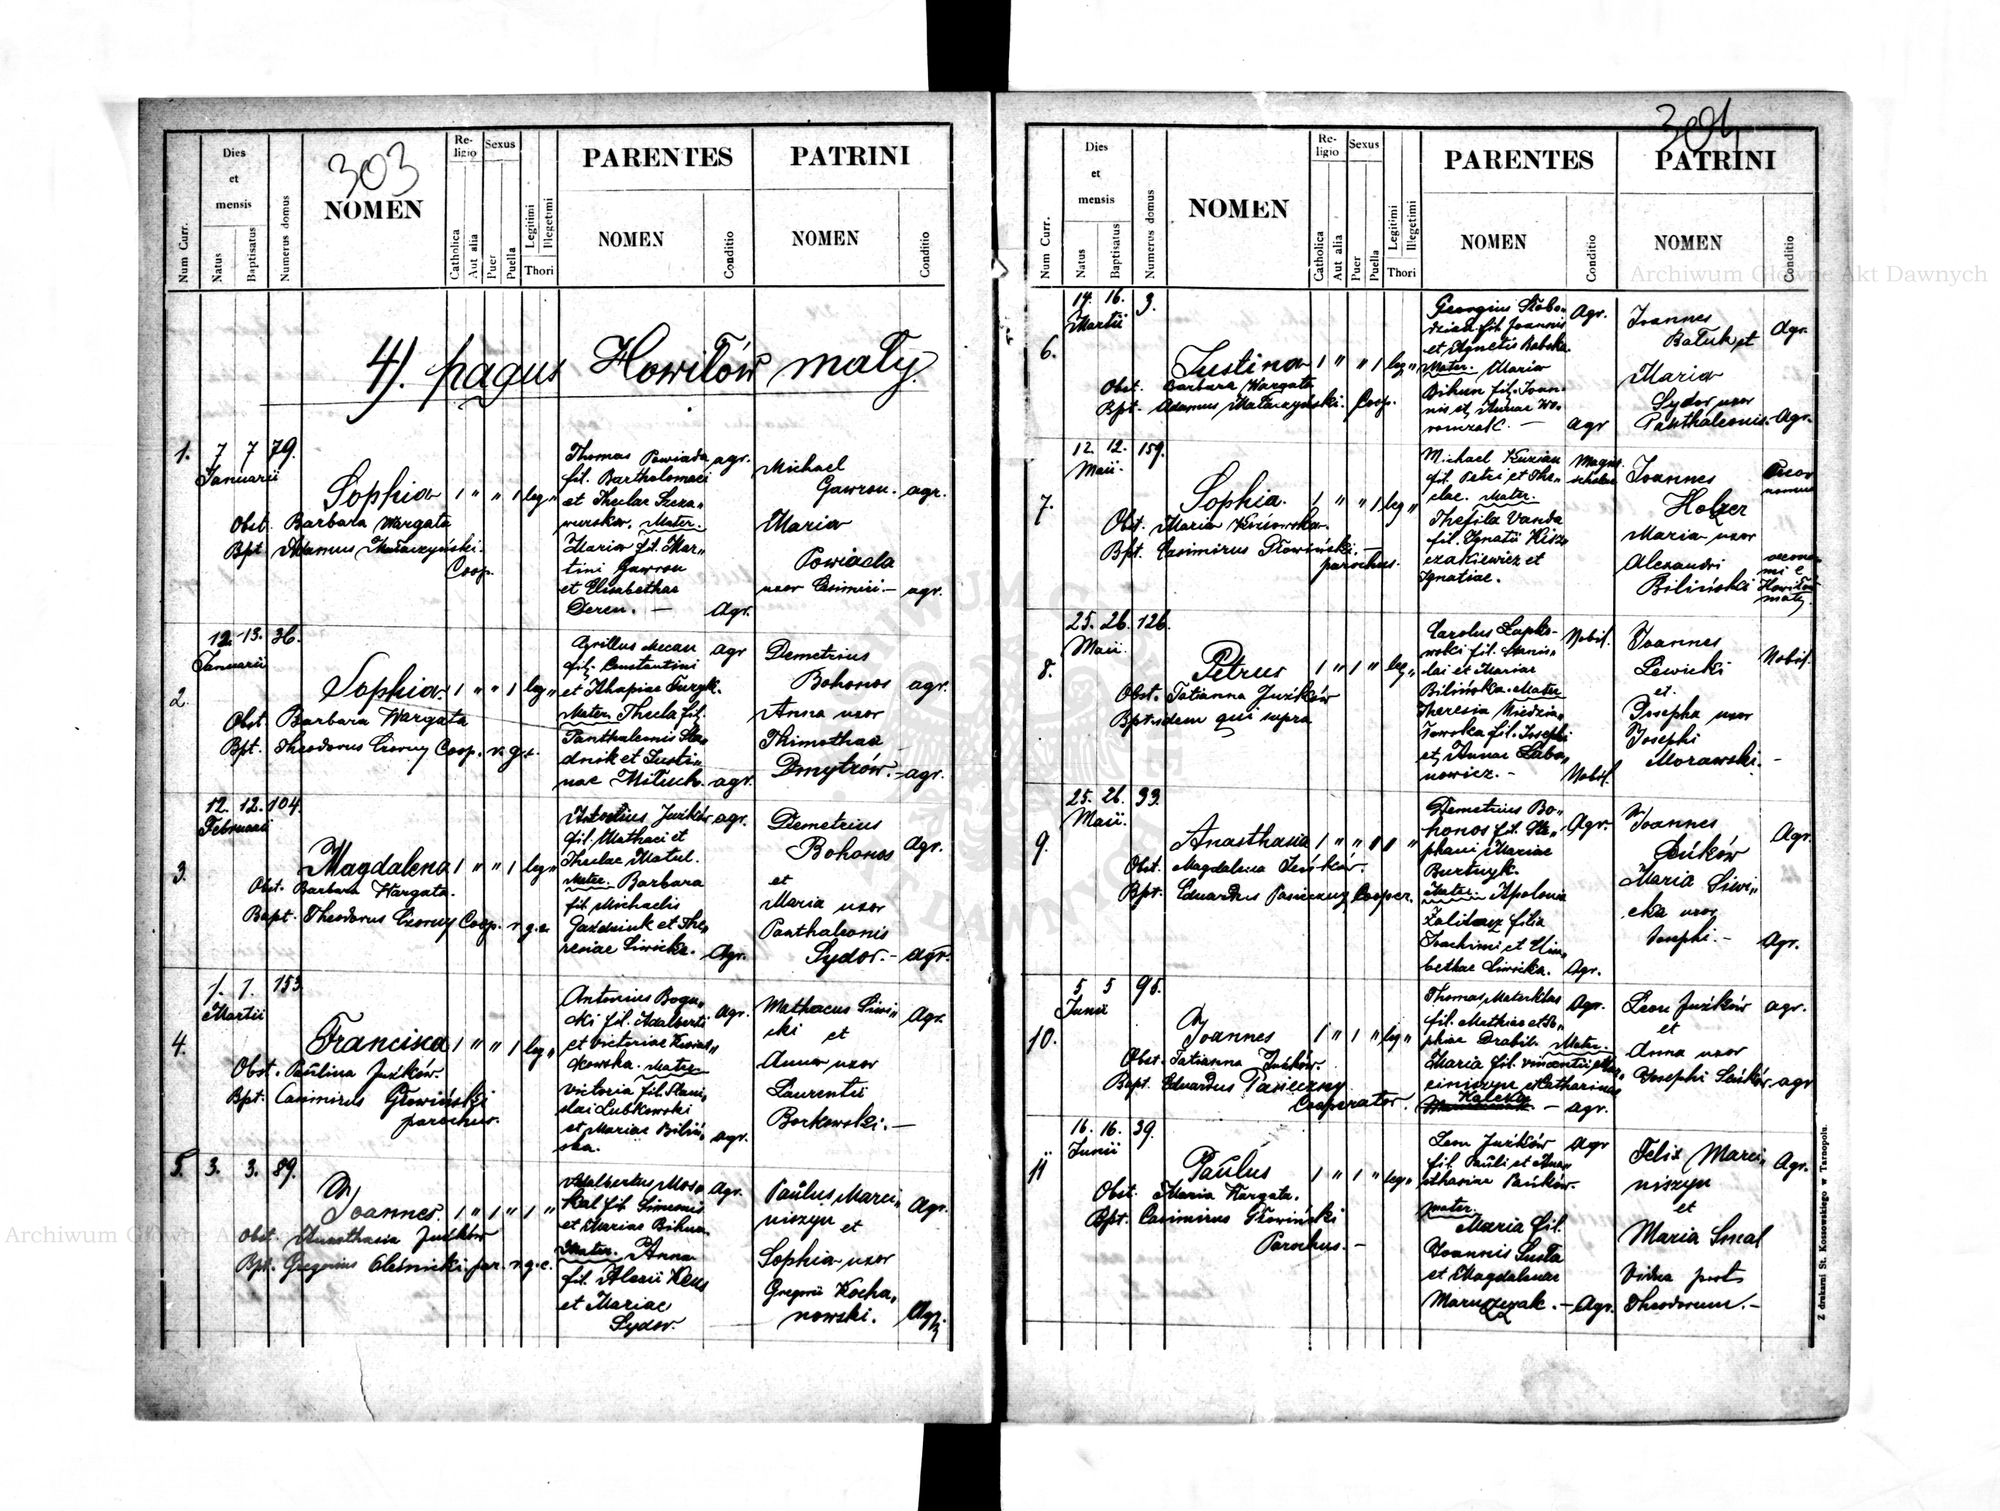 303
Num Curr.
Dies
et
mensis
Natus
Baptisatus
Numerus domus
NOMEN
Re-
ligio
Catholica
Aut alia
Sexus
Puer
Puella
Legitimi
Illegetimi
Thori
PARENTES
NOMEN
Conditio
PATRINI
NOMEN
Conditio
4). pagus Howiłów mały.
1. 7 7 79.
Januarii
Sophia 1 " " 1 leg "
Obst. Barbara Wargata
Bpt. Adamus Małaczyński.
Coop.
Thomas Powiada agr.
fil. Bartholomaei
et Theclae
Mater.
Maria fil. Mar"
tini Gawron
et Elisabethae
Deren. — Agr.
Michael
Gawron. agr.
Maria
Powiada
uxor Casimiri. — agr.
2. 12. 13. 36.
Januarii
Sophia. 1 " " 1 leg "
Obst. Barbara Wargata
Bpt. Theodorus Czorny Coop. r. g. c.
agr
fil. Constantini
et
Mater. Thecla fil.
Panthaleonis
dnik et Justi"
nae agr.
Demetrius
Bohonos agr.
Anna uxor
Dmytrów. — agr.
3. 12. 12. 104.
Februarii
Magdalena 1 " " 1 leg "
Obst. Barbara Wargata.
Bapt. Theodorus Czorny Coop. r. g. c.
Juźków agr.
fil. Mathaei et
Theclae
Mater. Barbara
fil. Michaelis
et The"
resiae Siwicka. Agr.
Demetrius
Bohonos Agr.
et
Maria uxor
Panthaleonis
Sydor. — agr.
4. 1. 1. 153.
Martii
Francisca 1 " " 1 leg "
Obst. Paulina Juźków.
Bpt. Casimirus Głowiński
parochus.
Antonius Bogu" Agr.
cki fil. Adalberti
et Victoriae
Mater
Victoria fil. Stani"
slai Lubkowski
et Mariae Biliń"
ska. agr.
Mathaeus Siwi" Agr.
cki et
Anna uxor
Laurentii
Borkowski. —
5. 3. 3. 89.
Joannes. 1 " 1 " 1 "
Obst. Anasthasia Juźków
Bpt. Gregorius Oleśnicki par. r. g. c.
Adalbertus Mos" Agr.
kal fil. Simeonis
et Mariae Bihun.
Mater. Anna
fil. Alexii
et Mariae
Sydor.
Paulus Marci" Agr.
niszyn et
Sophia uxor
Gregorii Kocha"
nowski. Agr.
304
Num Curr.
Dies
et
mensis
Natus
Baptisatus
Numeros domus
NOMEN
Re-
ligio
Catholica
Aut alia
Sexus
Puer
Puella
Legitimi
Illegetimi
Thori
PARENTES
NOMEN
Conditio
PATRINI
NOMEN
Conditio
Archiwum Główne Akt Dawnych
6. 14. 16. 3.
Martii
Justina 1 " " 1 leg "
Obst. Barbara Wargata
Bpt. Adamus Małaczyński. Coop.
Georgius Słobo- Agr.
dzian fil. Joannis
et Agnetis Babska.
Mater. Maria
Bihun fil. Joan"
nis et Annae Wo"
— agr
Joannes
Batuk et Agr.
Maria
Sydor uxor
Panthaleonis. Agr.
7. 12. 12. 159.
Maii.
Sophia. 1 " " 1 leg "
Obst. Maria
Bpt. Casimirus Głowiński. —
parochus.
Michael Kuzian
fil. Petri et The"
clae. Mater.
Thefila Vanda
fil. Ignatii Kisz"
czakiewicz et
Ignatiae.
Joannes
Holzer
Maria uxor
Alexandri
Biliński
Howiłów
mały
8. 25. 26. 126.
Maii.
Petrus 1 " 1 " leg "
Obst. Tatianna Juźków
Bpt. idem qui supra
Carolus Łapko- Nobil.
wski fil. Stanis"
lai et Mariae
Bilińska. Mater
Theresia Niedzia"
fil. Josephi
et Annae
nowicz. — Nobil.
Joannes
Lewicki Nobil.
et.
Josepha uxor
Josephi
Morawski. —
9. 25. 26. 33.
Maii.
Anasthasia 1 " " "
Obst. Magdalena
Bpt. Eduardus Pasieczny Cooper.
Demetrius Bo" Agr.
honos fil. Ste"
phani Mariae
Burtnyk.
Mater Apolonia
filia
Joachimi et Elisa"
bethae Siwicka. Agr.
Joannes Agr.
Maria Siwi"
cka uxor
Josephi. — Agr.
10. 5 5 95.
Junii
Joannes 1 " 1 " leg "
Obst. Tatianna Juźków.
Bapt. Eduardus Pasieczny
Cooperator.
Thomas Agr.
fil. Mathiae et So"
phiae Drabik Mater.
Maria fil. Vincentii Mar"
ciniszyn et Catharinae
— agr.
Leon Juźków agr.
et
Anna uxor
Josephi agr
11 16. 16. 39.
Junii
Paulus 1 " 1 " leg "
Obst. Maria Wargata.
Bpt. Casimirus Głowiński
Parochus. —
Leon Juźków agr
fil. Pauli et Ana"
sthasiae
Mater.
Maria fil.
Joannis Susta
et Magdalenae
Maruszczak. — Agr.
Felix Marci" Agr.
niszyn
et
Maria Smal
Vidua post
Theodorum. —
Z drukarni St. Kossowskiego w Tarnopolu.
Archiwum Główne